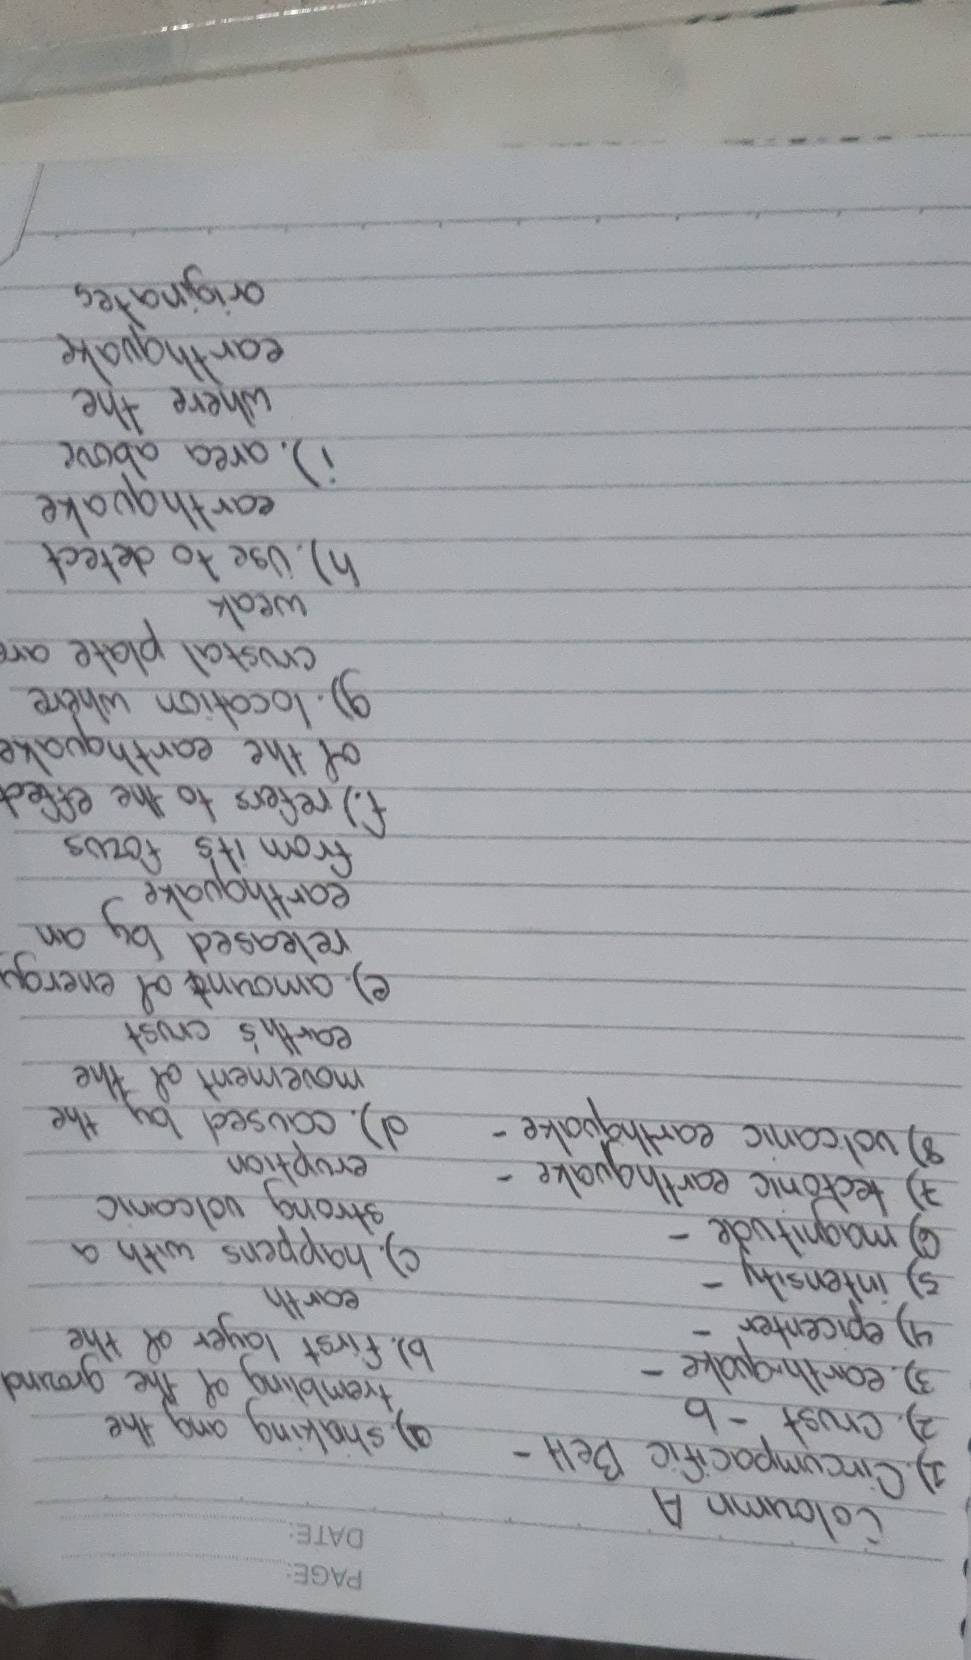 PAGE:
DATE:
Coloumn A
1). Circumpacific Belt -
2). crust - b
3). earthquake -
4) epicenter -
5) intensity -
6) magnitude -
7) tectonic earthquake -
8) volcanic earthquake -
a). shaking ang the
trembling of the ground
b). first layer of the
earth
c). happens with a
strong volcanic
eruption
d). caused by the
movement of the
earth's crust
e). amount of energy
released by an
earthquake
from it's focus
f.) refers to the effect
of the earthquake
g). location where
crustal plate are
weak
h). use to detect
earthquake
i). area above
where the
earthquake
originates